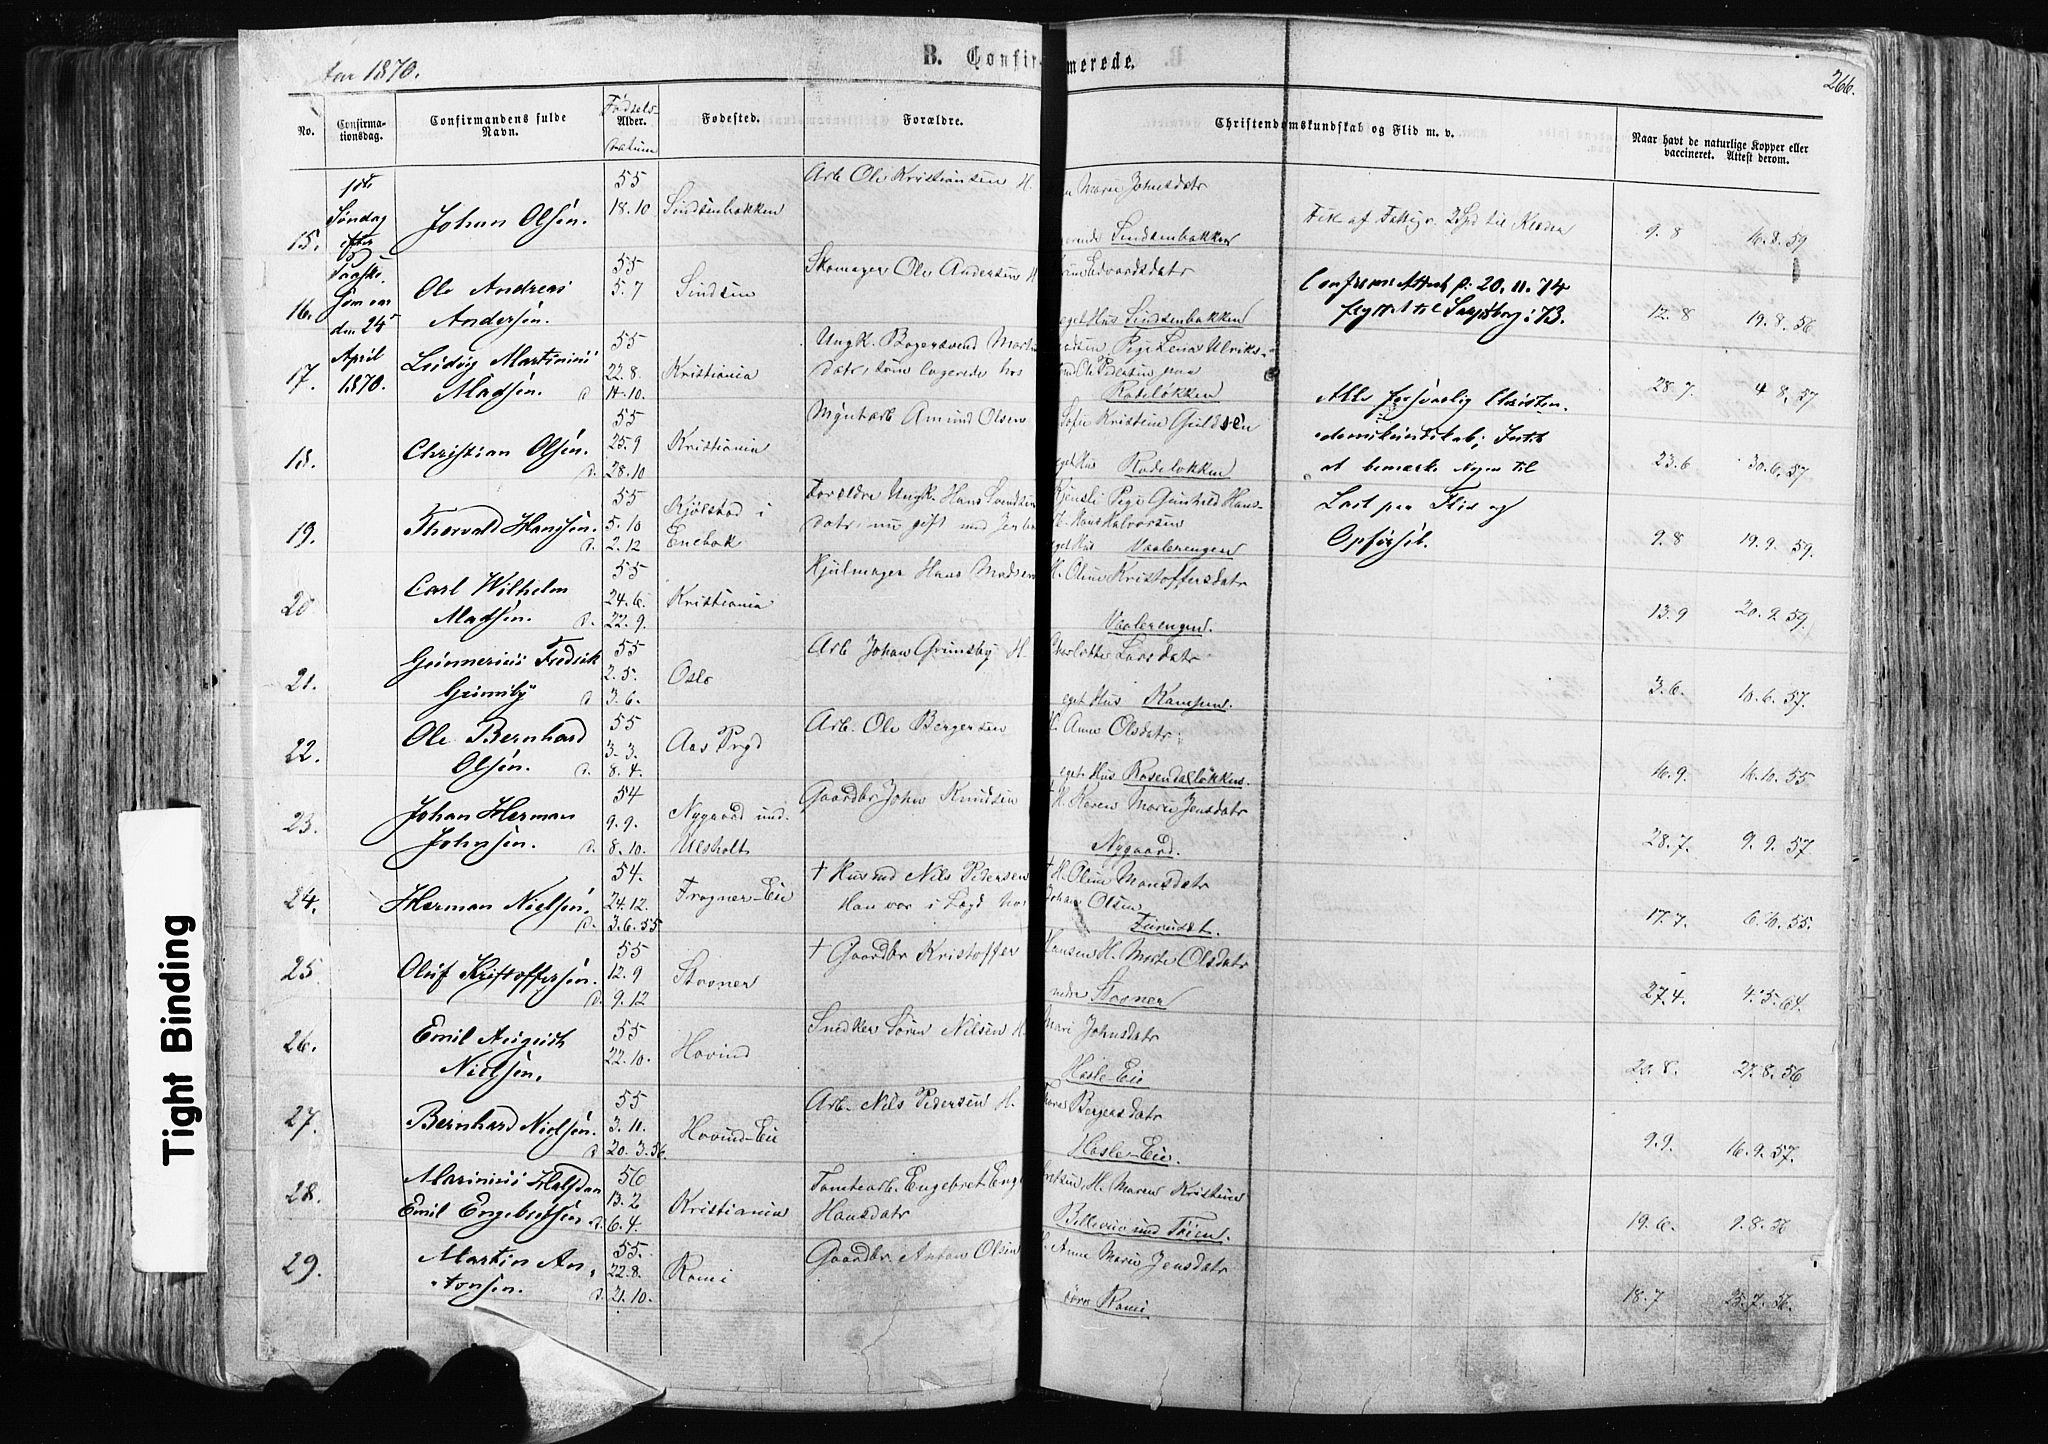 Aar 1870.
B. Confirmerede.
266.
No.
Confirmationsdag.
Confirmandens fulde Navn.
Fødsels-
Alder.
Datum
Fødested.
Forældre.
Christendomskundskab og Flid m. v.
Naar havt de naturlige Kopper eller
vaccineret. Attest derom.
1ste
Søndag
efter
Paaske,
som var
den 24
April
1870.
15. Johan Olsen. 55 18.10 Sindsenbakken
Arb. Ole Kristiansen H. Maren Johnsdatr
Sindsenbakken
Fik af Fattigv. 2 Spd til Klæder
9.8 16.8.59
16. Ole Andreas
Andersen.
55 5.7 Sindsen
Skomager Ole Andersen H. Edvardsdatr
eget Hus Sindsenbakken
Confirm. Attest p. 20.11.74
flyttet til Sarpsborg i 73.
12.8 19.8.56
17. Ludvig Martinius
Madsen.
55 22.8. d. 14.10. Kristiania
Ungk. Bagersvend Pige Lena Ulriks-
datr som logerede hos Ole Pedersen paa
Rodeløkken
28.7. 4.8.57
Alle forsvarlig Christen-
domskundskab; Intet
at bemærke Nogen til
Last paa Flid og
Opførsel.
18. Christian Olsen. 55 25.9 d. 28.10 Kristiania
Myntarb Amund Olsen Sofie Kristine
eget Hus Rodeløkken
23.6 30.6.57
19. Thorvald Hansen. 55 5.10 d. 2.12
Kjølstad i
Enebak
Forældre Ungk. Hans Svendsen Pige Gunhild Hans-
datr; nu gift med Hans Halvorsen
eget Hus Vaalerengen
9.8 19.9.59.
20. Carl Wilhelm
Madsen.
55 24.6. d. 22.9. Kristiania
Hjulmager Hans Madsen H. Oline Kristoffersdatr
Vaalerengen.
13.9 20.9.59.
21. Gunnerius Fredrik
Grimsby
55 2.5. d 3.6. Oslo
Arb. Johan Grimsby H. Charlotte Larsdatr
eget Hus Kampen.
3.6. 10.6.57.
22. Ole Bernhard
Olsen.
55 3.3. d. 8.4. Aas Prgd
Arb. Ole Bergersen H. Anne Olsdatr;
eget Hus Rosendalløkken.
16.9. 16.10.55
23. Johan Herman
Johnsen.
54 9.9. d. 8.10.
Nygaard und.
Ulsholt
Gaardbr John Knudsen † H. Karen Marie Jensdatr
Nygaard.
28.7. 9.9.57
24. Herman Nielsen. 54. 24.12. d. 3.6.55 Frogner-Eie
† Husmd Nils Pedersen † H. Oline Monsdatr
Han var i Lægd hos Johan Olsen
Furuset.
17.7. 6.6.55.
25 Oluf Kristoffersen. 55 12.9 d. 9.12 Stovner
† Gaardbr Kristoffer Hansen H. Marte Olsdatr
nedre Stovner
27.4. 4.5.64.
26. Emil August
Nielsen.
55 22.10. Hovind
Snedker Søren Nilsen H. Mari Johnsdatr
Hasle-Eie
20.8. 27.8.56
27. Bernhard Nielsen. 55 3.11. d 20.3.56. Hovind-Eie
Arb. Nils Pedersen H. Bergersdatr
Hasle-Eie.
9.9. 16.9.57.
28. Marinius Halfdan
Emil Engebretsen
56 13.2 d. 6.4. Kristiania
Tomtearb. Engebret Engebretsen H. Maren Kristine
Hansdatr
Bellevue und Tøien.
19.6. 9.8.56
29. Martin An-
tonsen.
55. 22.8. d. 21.10. Romi
Gaardbr Anton Olsen H. Anne Marie Jensdatr
Romi
18.7 25.7.56.
Tight Binding